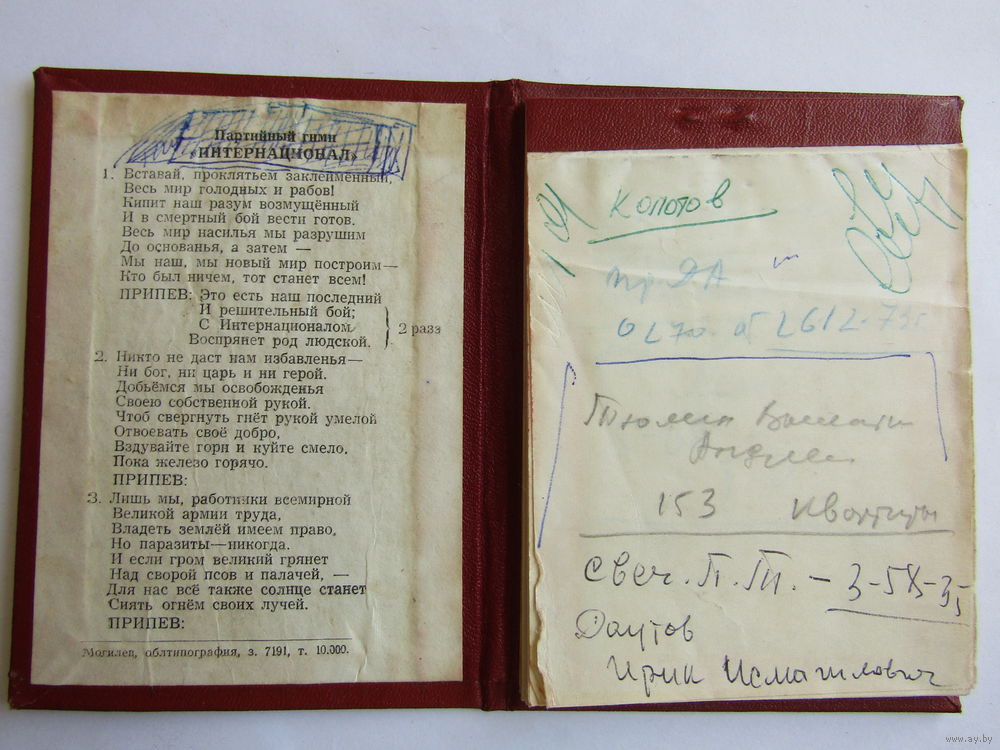 Партийный гимн
«ИНТЕРНАЦИОНАЛ»
1. Вставай, проклятьем заклеймённый,
Весь мир голодных и рабов!
Кипит наш разум возмущённый
И в смертный бой вести готов.
Весь мир насилья мы разрушим
До основанья, а затем —
Мы наш, мы новый мир построим—
Кто был ничем, тот станет всем!
ПРИПЕВ: Это есть наш последний
И решительный бой;
С Интернационалом
Воспрянет род людской.
2 раза
2. Никто не даст нам избавленья—
Ни бог, ни царь и ни герой.
Добьёмся мы освобожденья
Своею собственной рукой.
Чтоб свергнуть гнёт рукой умелой
Отвоевать своё добро,
Вздувайте горн и куйте смело,
Пока железо горячо.
ПРИПЕВ:
3. Лишь мы, работники всемирной
Великой армии труда,
Владеть землёй имеем право,
Но паразиты—никогда.
И если гром великий грянет
Над сворой псов и палачей, —
Для нас всё также солнце станет
Сиять огнём своих лучей.
ПРИПЕВ:
Могилев, облтипография, з. 7191, т. 10.000.
Колотов
153 Квартиры
Свеч. П. Т. – 3-58-35
Даутов
Ирик Исмагилович
www.ay.by